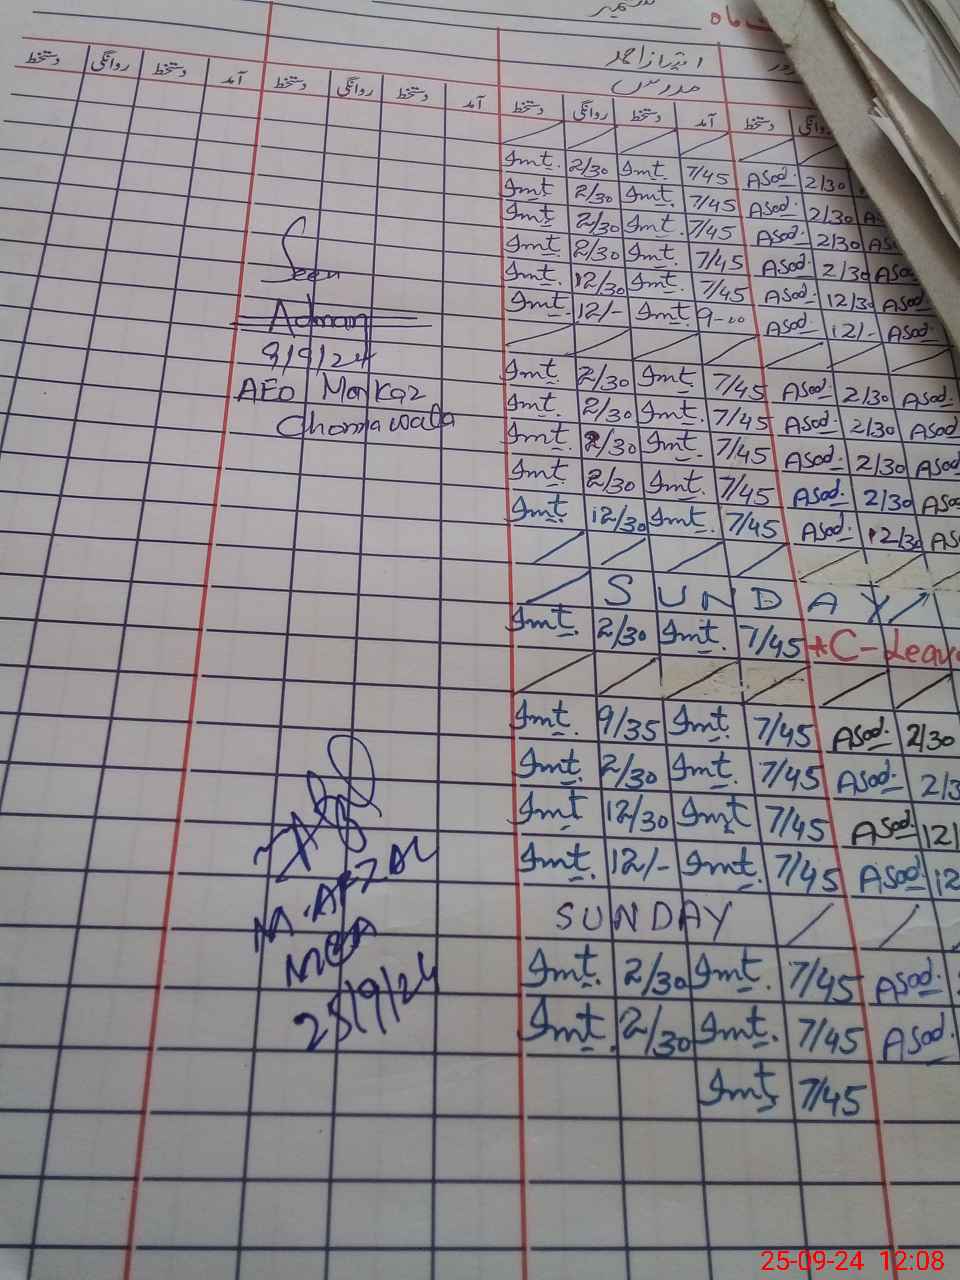 ستمبر
امتیاز احمد
مدرس
آمد دستخط روانگی دستخط آمد دستخط روانگی دستخط آمد دستخط روانگی دستخط
Imt. 2/30 Imt. 7/45 Asad. 2/30
Imt 2/30 Imt. 7/45 Asad. 2/30 A
Imt 2/30 Imt. 7/45 Asad. 2/30 As
Imt. 2/30 Imt. 7/45 Asad. 2/30 Asa
Imt. 12/30 Imt. 7/45 Asad. 12/30 Asad
Imt. 12/- Imt. 9-00 Asad. 12/- Asad
Imt. 2/30 Imt. 7/45 Asad. 2/30 Asad.
Imt. 2/30 Imt. 7/45 Asad. 2/30 Asad
Imt. 2/30 Imt. 7/45 Asad. 2/30 Asad
Imt. 2/30 Imt. 7/45 Asad. 2/30 Asa
Imt. 12/30 Imt. 7/45 Asad. 12/30 As
SUNDAY
Imt. 2/30 Imt. 7/45 *C-Leave
Imt. 9/35 Imt. 7/45 Asad. 2/30
Imt. 2/30 Imt. 7/45 Asad. 2/3
Imt 12/30 Imt 7/45 Asad. 12/
Imt. 12/- Imt. 7/45 Asad. 12
SUNDAY
Imt. 2/30 Imt. 7/45 Asad.
Imt. 2/30 Imt. 7/45 Asad.
Imt 7/45
Seen
Adnan
9/9/24
AEO Markaz
Chomawala
M.AFZAL
MEA
25/9/24
25-09-24 12:08